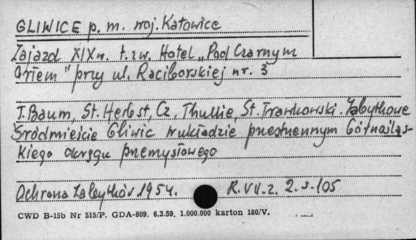 GLIWICE p. m. woj. Katowice
Zajazd XIX w. t. zw. Hotel „Pod Czarnym
Orłem" przy ul. Raciborskiej nr. 3
T. Baum, St. Herbst, Cz. Thullie, St. Trawkowski. Zabytkowe
Śródmieście Gliwic w układzie przestrzennym Górnoślą-
skiego okręgu przemysłowego
Ochrona Zabytków 1954. R. VII. z. 2. s. 105
CWD B-15b Nr 515/P. GDA-809. 6.3.59. 1.000.000 karton 180/V.